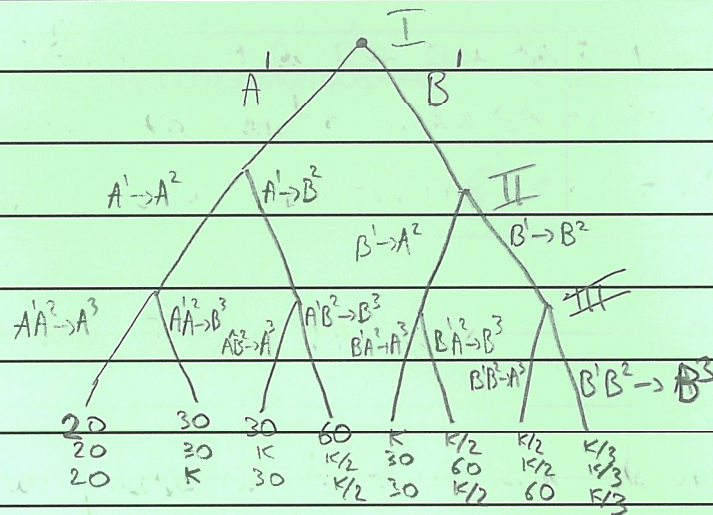 I
A¹ B¹
A¹→A² A¹→B² II
B¹→A² B¹→B²
A¹A²→A³ A¹A²→B³ A¹B²→A³ A¹B²→B³ B¹A²→A³ B¹A²→B³ III
B¹B²→A³ B¹B²→B³
20 30 30 60 K K/2 K/2 K/3
20 30 K K/2 30 60 K/2 K/3
20 K 30 K/2 30 K/2 60 K/3